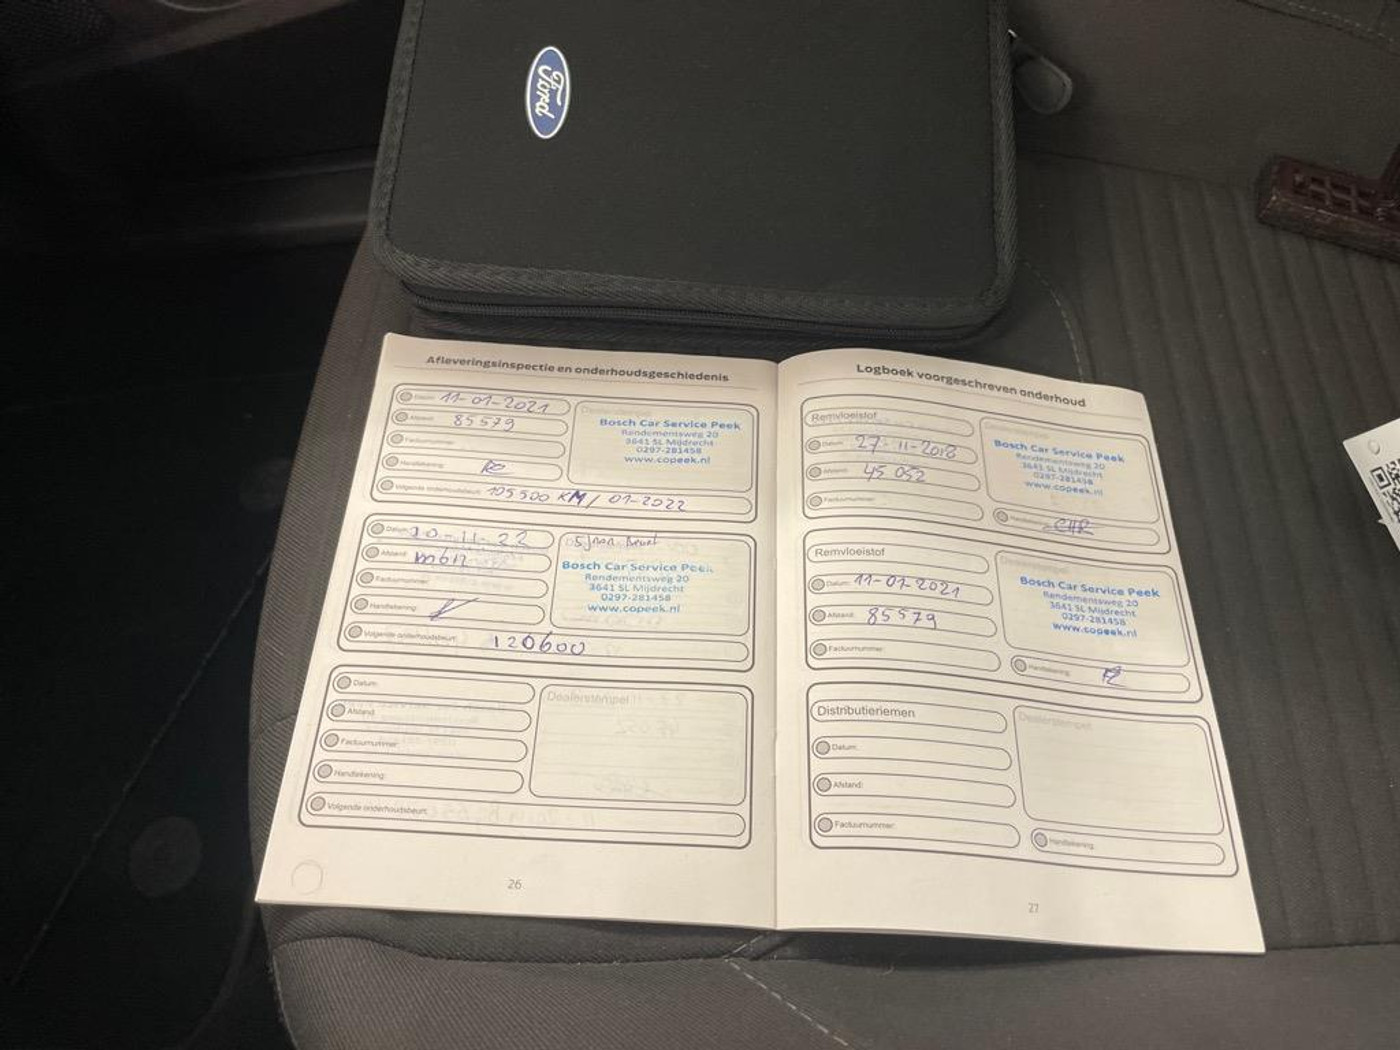 Ford
Afleveringsinspectie en onderhoudsgeschiedenis
Datum: 11-01-2021
Afstand: 85579
Factuurnummer:
Handtekening:
Volgende onderhoudsbeurt: 105500 KM / 01-2022
Dealerstempel
Bosch Car Service Peek
Rendementsweg 20
3641 SL Mijdrecht
0297-281458
www.copeek.nl
Datum:
Afstand:
Factuurnummer:
Handtekening:
Volgende onderhoudsbeurt: 120600
5 Jaar Beurt
Bosch Car Service Peek
Rendementsweg 20
3641 SL Mijdrecht
0297-281458
www.copeek.nl
Datum:
Afstand:
Factuurnummer:
Handtekening:
Volgende onderhoudsbeurt:
Dealerstempel
26
Logboek voorgeschreven onderhoud
Remvloeistof
Datum: 27-11-2018
Afstand: 45 052
Factuurnummer:
Dealerstempel
Bosch Car Service Peek
Rendementsweg 20
3641 SL Mijdrecht
0297-281458
www.copeek.nl
Handtekening:
Remvloeistof
Datum: 11-01-2021
Afstand: 85579
Factuurnummer:
Dealerstempel
Bosch Car Service Peek
Rendementsweg 20
3641 SL Mijdrecht
0297-281458
www.copeek.nl
Handtekening:
Distributieriemen
Datum:
Afstand:
Factuurnummer:
Dealerstempel
Handtekening:
27